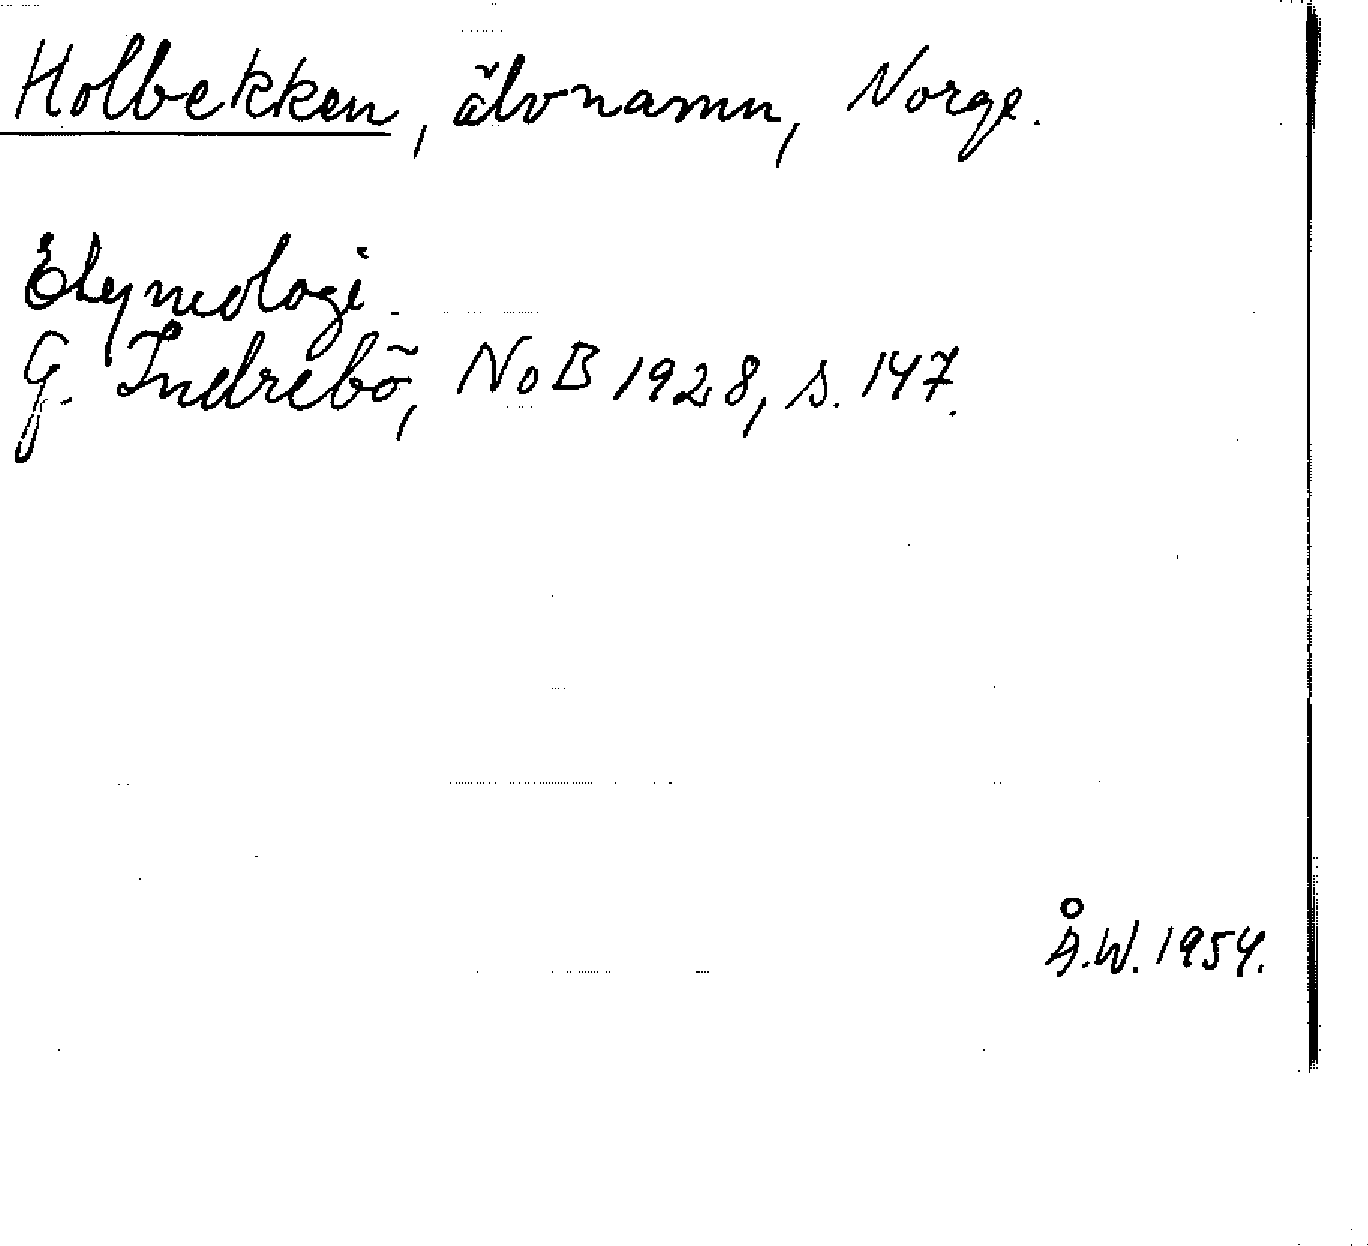 Holbekken, älvnamn, Norge.
Etymologi.
G. Indrebö, NoB 1928, s. 147.
Å.W. 1954.